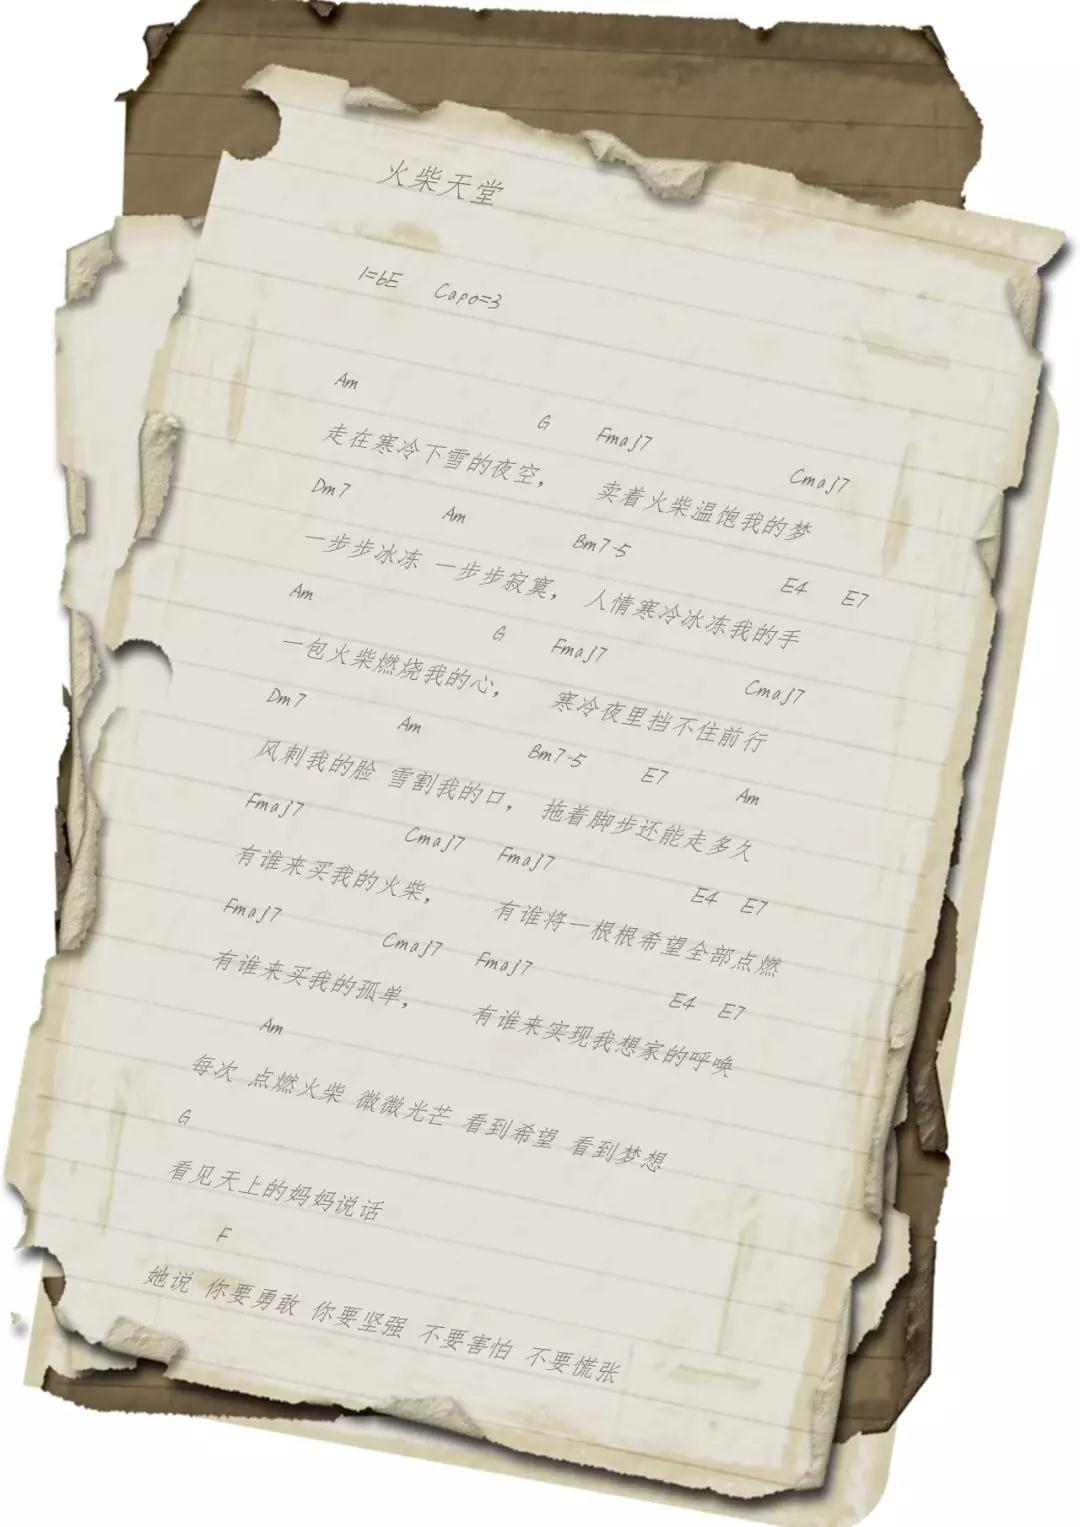 火柴天堂
1=bE Capo=3
Am G Fmaj7 Cmaj7
走在寒冷下雪的夜空， 卖着火柴温饱我的梦
Dm7 Am Bm7-5 E4 E7
一步步冰冻 一步步寂寞， 人情寒冷冰冻我的手
Am G Fmaj7 Cmaj7
一包火柴燃烧我的心， 寒冷夜里挡不住前行
Dm7 Am Bm7-5 E7 Am
风刺我的脸 雪割我的口， 拖着脚步还能走多久
Fmaj7 Cmaj7 Fmaj7 E4 E7
有谁来买我的火柴， 有谁将一根根希望全部点燃
Fmaj7 Cmaj7 Fmaj7 E4 E7
有谁来买我的孤单， 有谁来实现我想家的呼唤
Am
每次 点燃火柴 微微光芒 看到希望 看到梦想
G
看见天上的妈妈说话
F
她说 你要勇敢 你要坚强 不要害怕 不要慌张